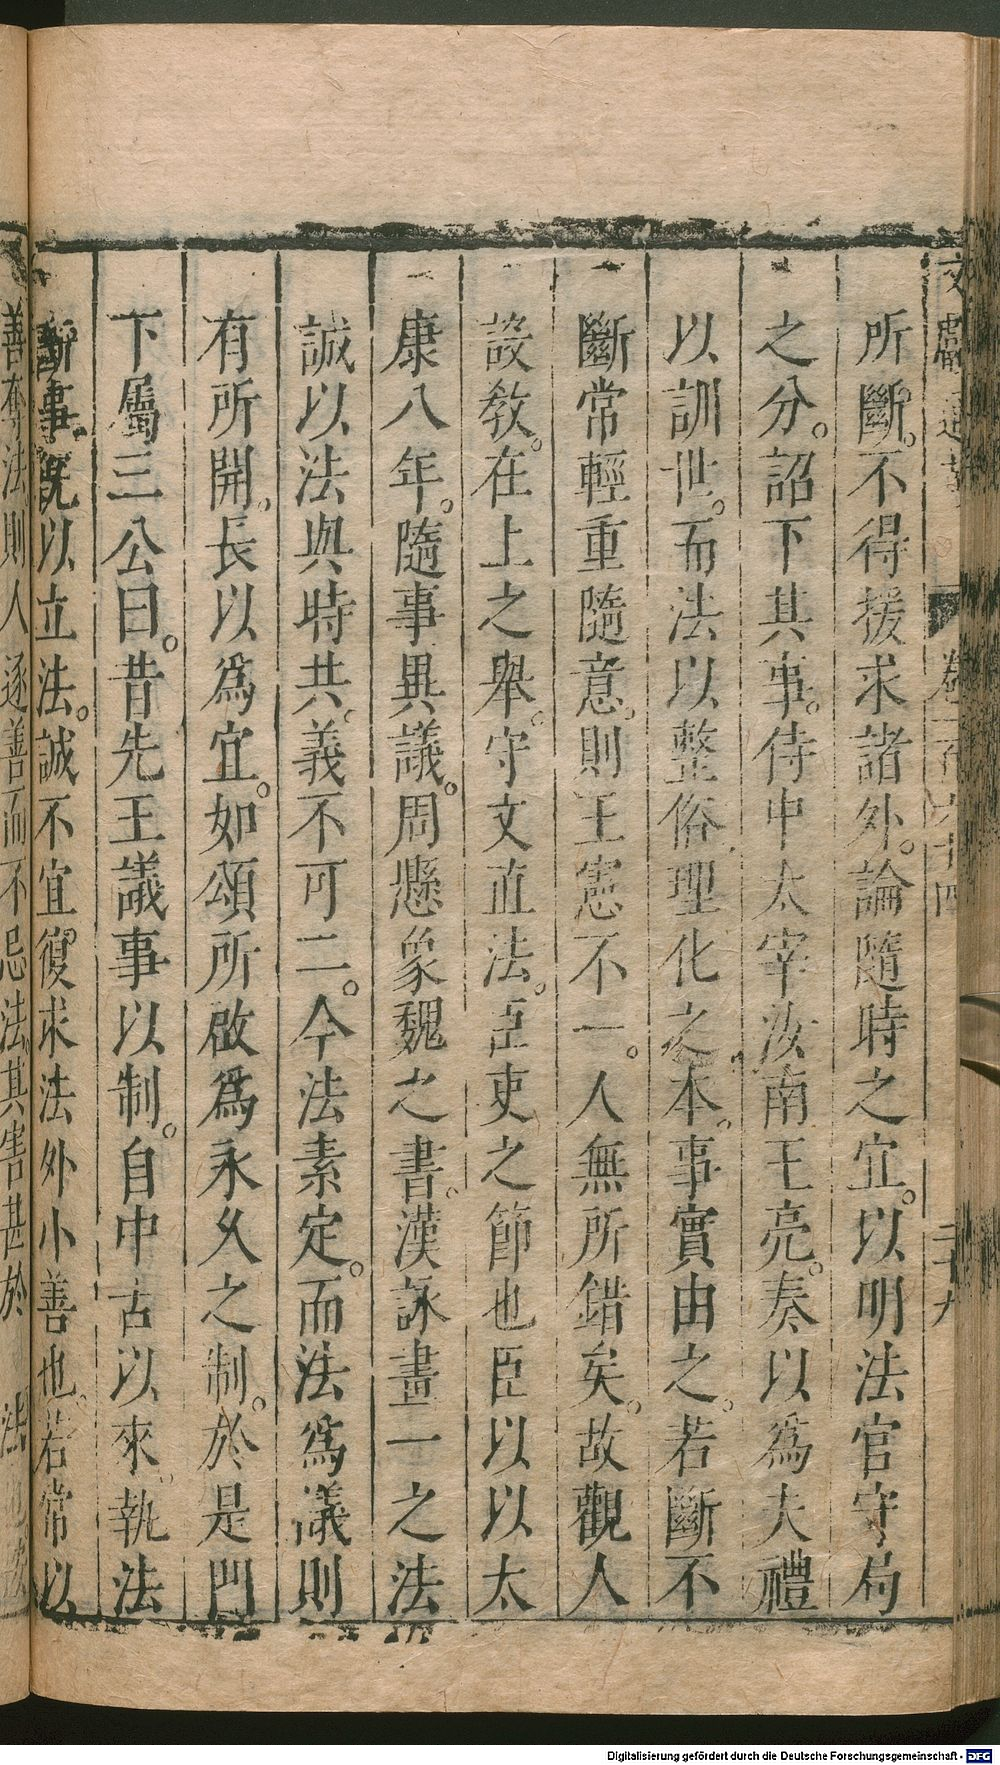 所斷。不得援求諸外。論隨時之宜。以明法官守局
之分。詔下其事。侍中太宰汝南王亮。奏以爲夫禮
以訓世。而法以整俗。理化之本。事實由之。若斷不
斷常輕重隨意。則王憲不一。人無所錯矣。故觀人
設敎。在上之舉。守文直法。臣吏之節也臣以以太
康八年。隨事異議。周懸象魏之書。漢詠畫一之法
誠以法與時共。義不可二。今法素定。而法爲議則
有所開。長以爲宜。如頌所啟爲永久之制。於是門
下屬三公曰。昔先王議事以制。自中古以來。執法
斷事既以立法。誠不宜復求法外小善也。若常以
善奪法則人逐善而不忌法。其害甚於
Digitalisierung gefördert durch die Deutsche Forschungsgemeinschaft - DFG